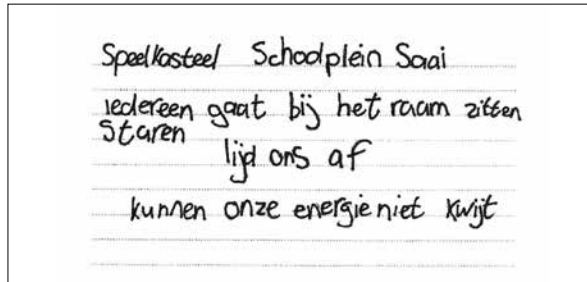 Speelkasteel Schoolplein Saai
iedereen gaat bij het raam zitten
staren
lijd ons af
kunnen onze energie niet kwijt